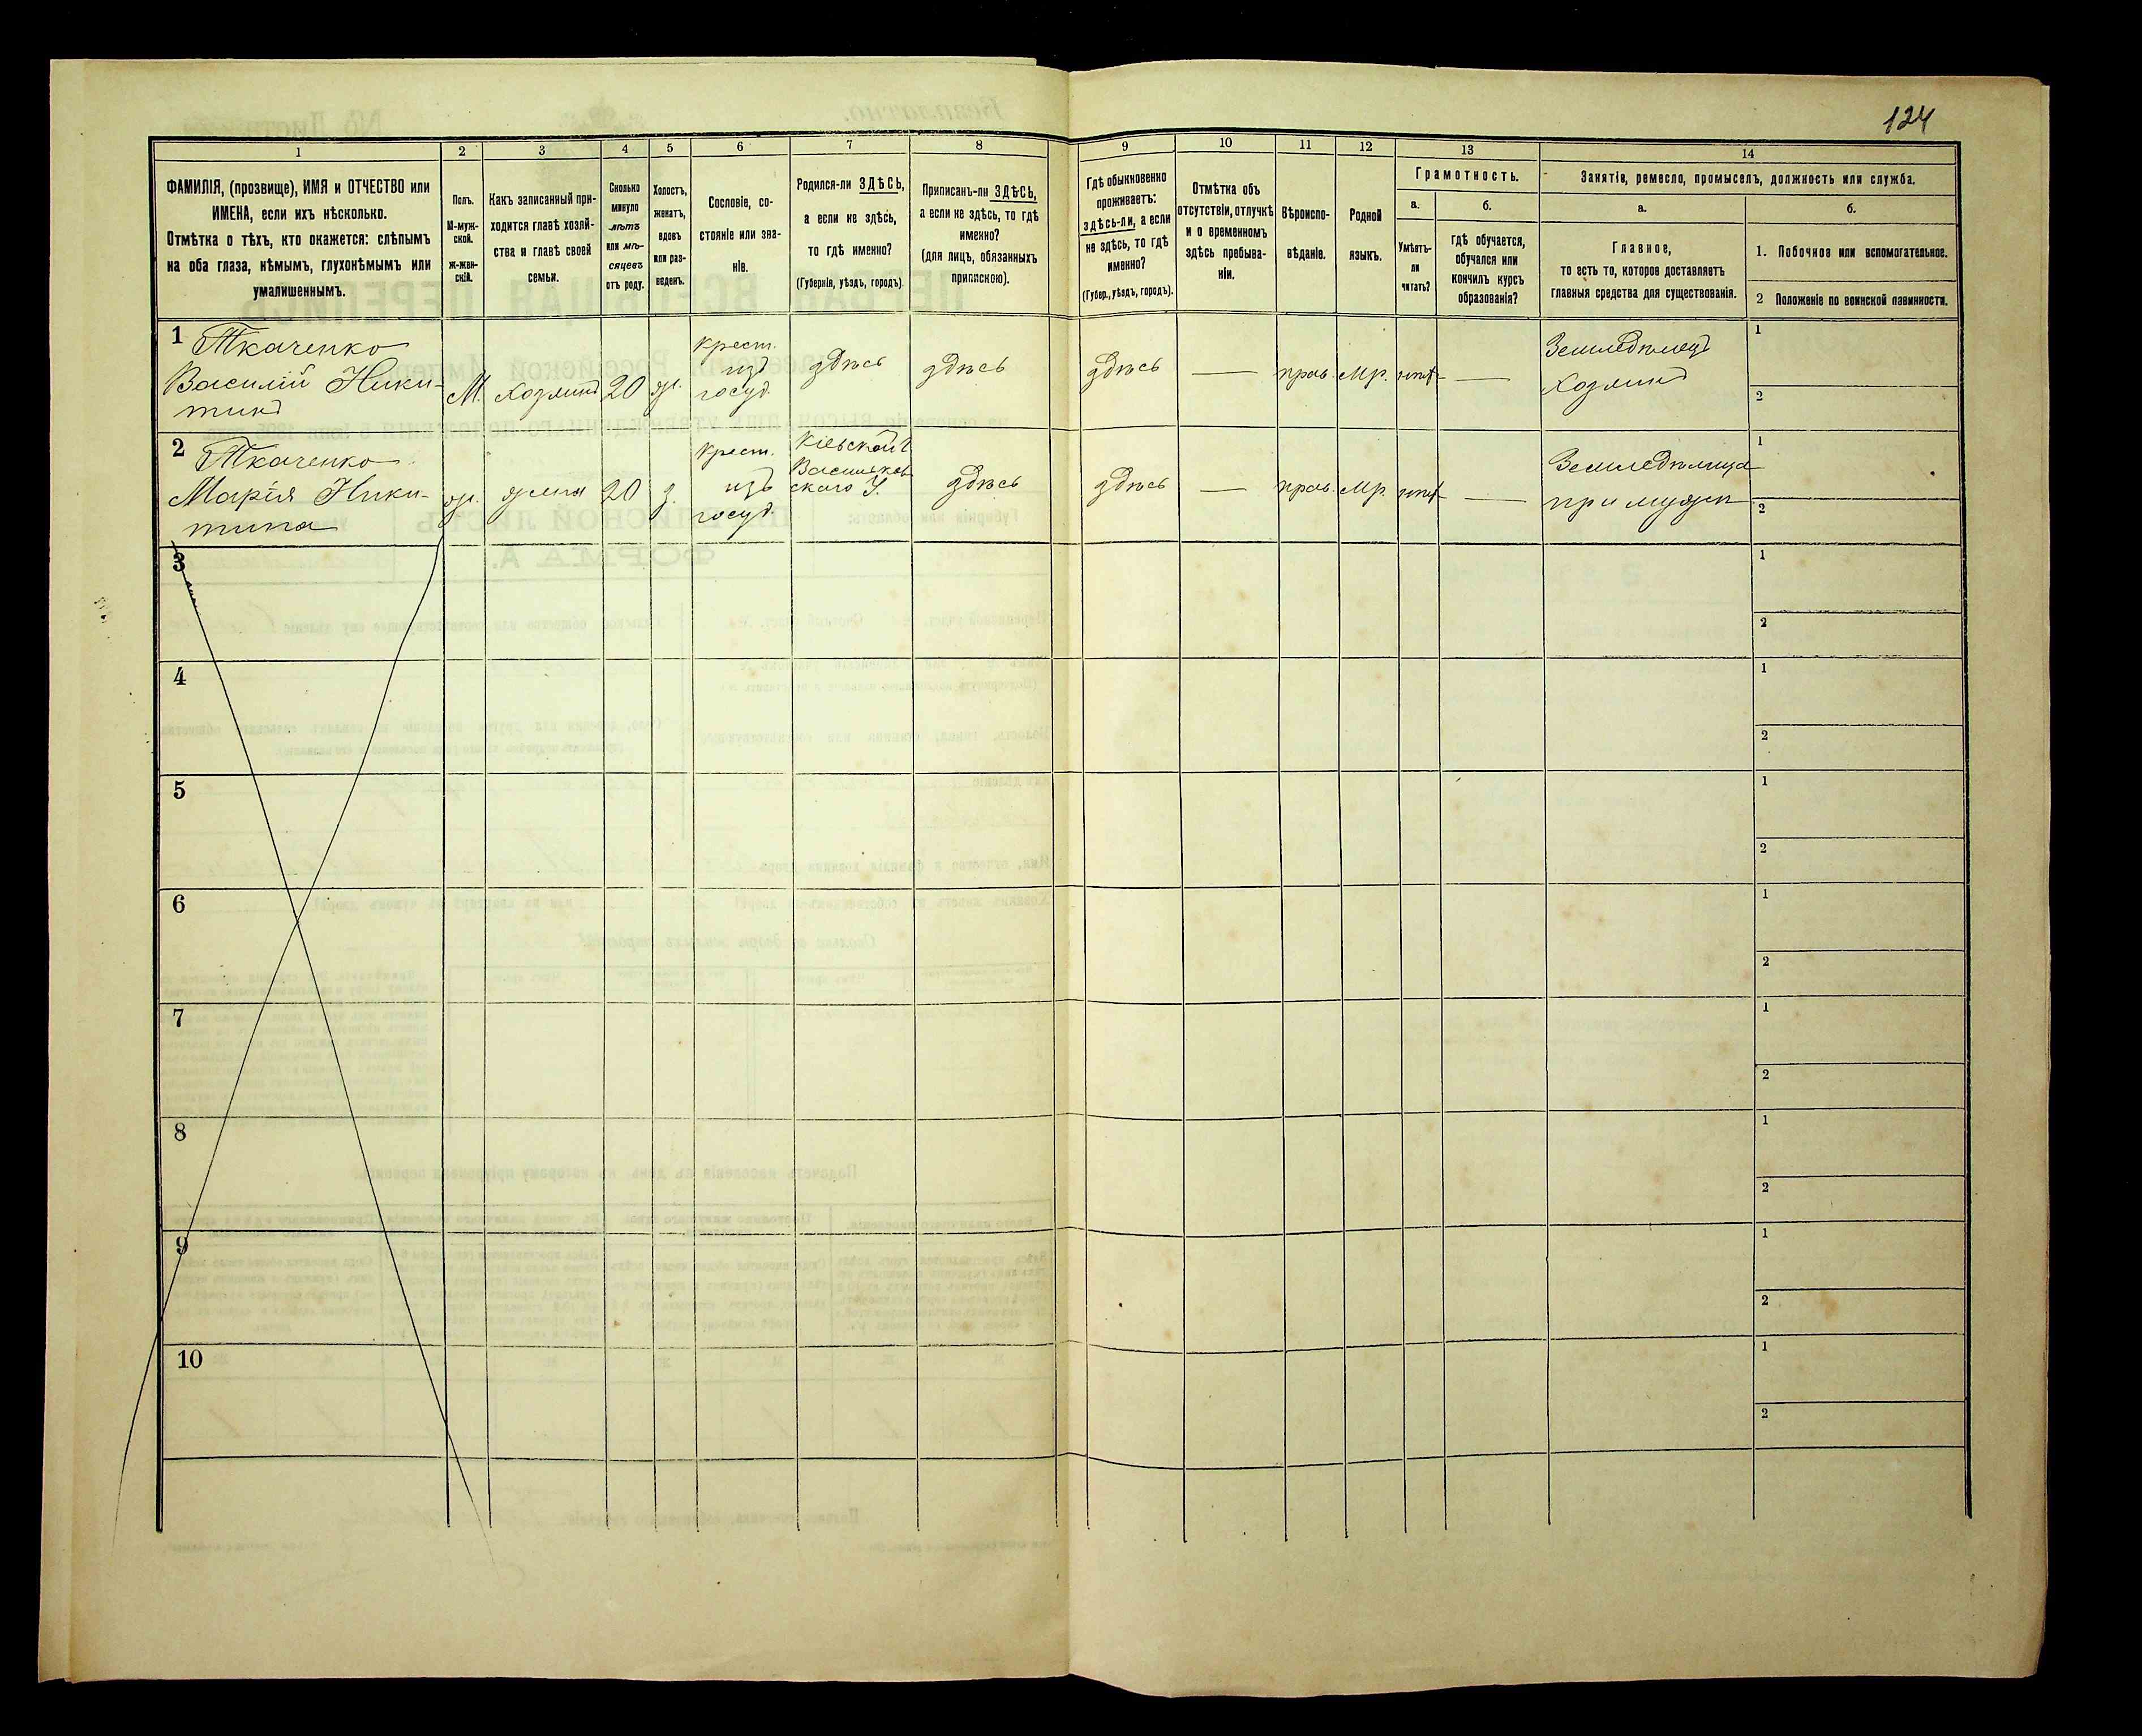 124
1
2
3
4
5
6
7
8
9
10
11
12
13
14
ФАМИЛІЯ, (прозвище), ИМЯ и ОТЧЕСТВО или
ИМЕНА, если ихъ нѣсколько.
Отмѣтка о тѣхъ, кто окажется: слѣпымъ
на оба глаза, нѣмымъ, глухонѣмымъ или
умалишеннымъ.
Полъ.
М-муж-
ской.
ж-жен-
скій.
Какъ записанный при-
ходится главѣ хозяй-
ства и главѣ своей
семьи.
Сколько
минуло
лѣтъ
или мѣ-
сяцевъ
отъ роду.
Холостъ,
женатъ,
вдовъ
или раз-
веденъ.
Сословіе, со-
стояніе или зва-
ніе.
Родился-ли ЗДѢСЬ,
а если не здѣсь,
то гдѣ именно?
(Губернія, уѣздъ, городъ).
Приписанъ-ли ЗДѢСЬ,
а если не здѣсь, то гдѣ
именно?
(для лицъ, обязанныхъ
припискою).
Гдѣ обыкновенно
проживаетъ:
здѣсь-ли, а если
не здѣсь, то гдѣ
именно?
(Губер., уѣздъ, городъ).
Отмѣтка объ
отсутствіи, отлучкѣ
и о временномъ
здѣсь пребыва-
ніи.
Вѣроиспо-
вѣданіе.
Родной
языкъ.
Грамотность.
а.
Умѣетъ-
ли
читать?
б.
Гдѣ обучается,
обучался или
кончилъ курсъ
образованія?
Занятіе, ремесло, промыселъ, должность или служба.
а.
Главное,
то есть то, которое доставляетъ
главныя средства для существованія.
б.
1. Побочное или вспомогательное.
2 Положеніе по воинской повинности.
1
Ткаченко
Василій Ники-
тинъ
М.
хозяинъ
20
ж.
крест.
изъ
госуд.
здѣсь
здѣсь
здѣсь
—
прав.
Мр.
нѣтъ
—
Земледѣлецъ
Хозяинъ
1
2
2
Ткаченко
Марія Ники-
тина
ж.
жена
20
з.
крест.
изъ
госуд.
Кіевской г
Васильков
скаго У.
здѣсь
здѣсь
—
прав.
Мр.
нѣтъ
—
Земледѣлица
при мужѣ
1
2
3
1
2
4
1
2
5
1
2
6
1
2
7
1
2
8
1
2
9
1
2
10
1
2